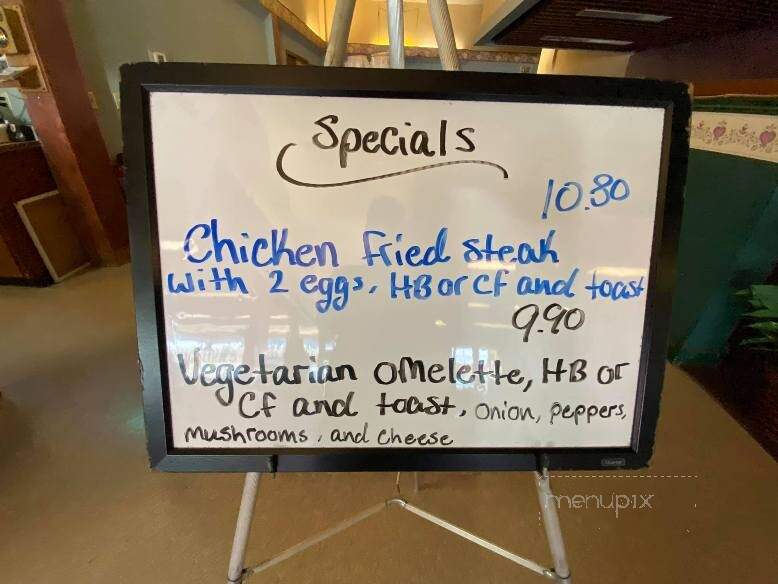 Specials
10.80
Chicken Fried steak
with 2 eggs, HB or CF and toast
9.90
Vegetarian omelette, HB or
CF and toast, onion, peppers,
mushrooms, and cheese
menupix